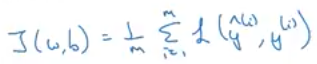 J(w,b) = 1/m Σ_{i=1}^{m} L(ŷ^{(i)}, y^{(i)})